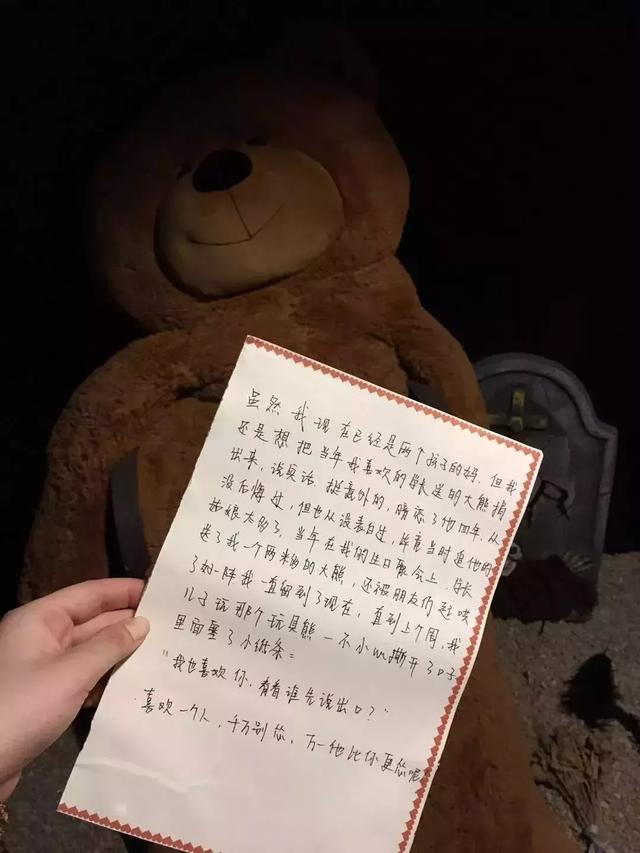 虽然我现在已经是两个孩子的妈，但我
还是想把当年我喜欢的学长送的大熊捐
出来，说实话，挺意外的，暗恋了他四年，从
没后悔过，但也从没表白过，毕竟当时追他的
姑娘太多了，当年在我的生日聚会上，学长
送了我一个两米多的大熊，还被朋友们起哄
了好一阵我一直留到了现在，直到上个周，我
儿子玩那个玩具熊一不小心撕开了口子，
里面塞了小纸条：
"我也喜欢你，看看谁先说出口？"
喜欢一个人，千万别怂，万一他比你更怂呢
R